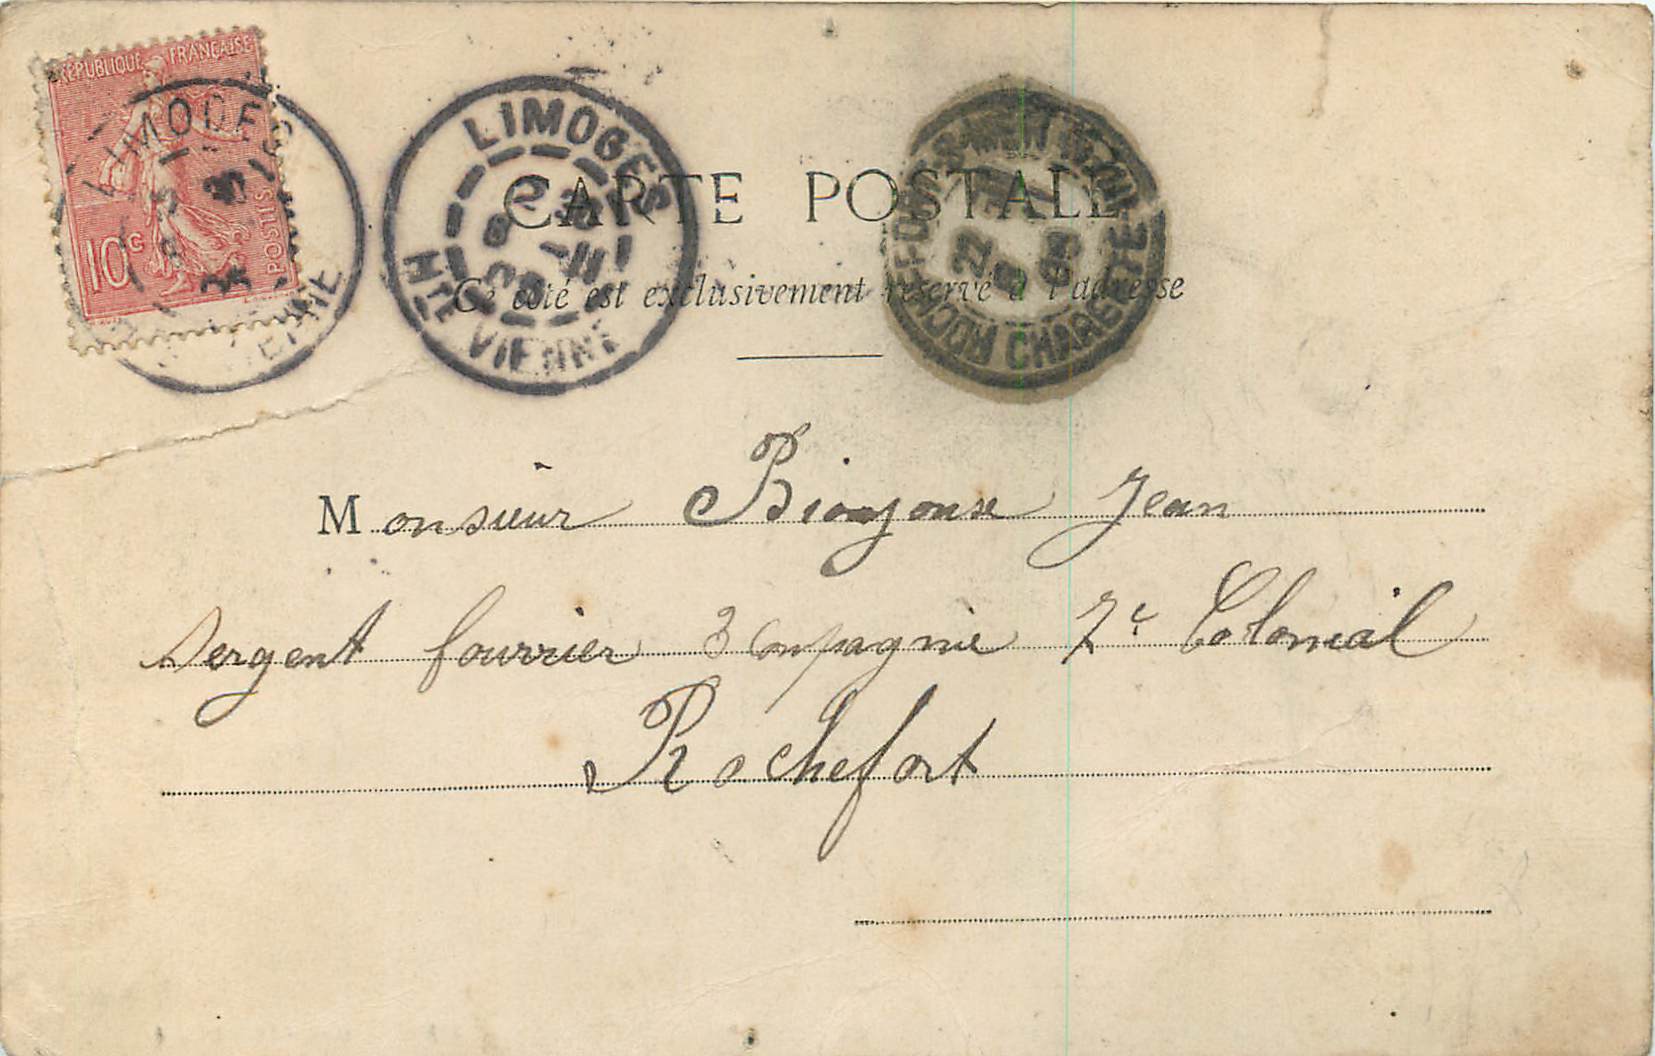 RÉPUBLIQUE FRANÇAISE
10c
POSTES
LIMOGES
LIMOGES
Hte VIENNE
CHARENTE
CARTE POSTALE
Ce côté est exclusivement réservé à l'adresse
Monsieur Jean
Sergent fourrier 3 Compagnie 7e Colonial
Rochefort